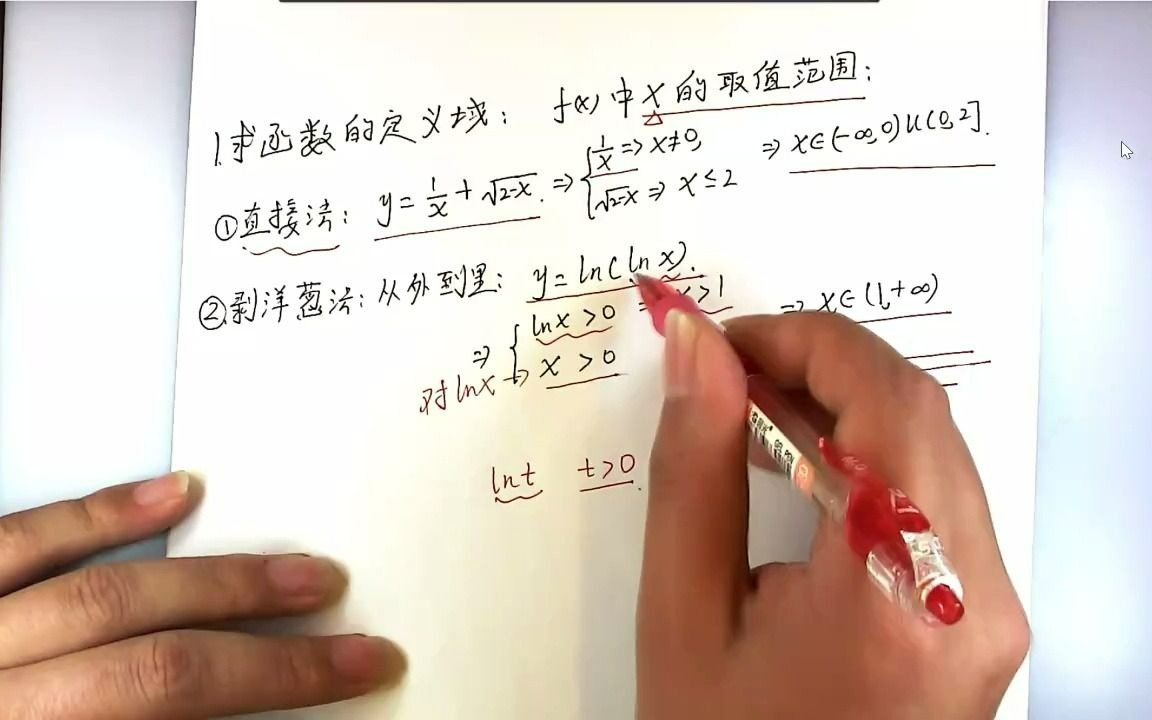 1.求函数的定义域： f(x)中x的取值范围：
①直接法： y=1/x+√2-x. ⇒ { 1/x ⇒ x≠0, √2-x ⇒ x≤2 ⇒ x∈(-∞,0)∪(0,2].
②剥洋葱法：从外到里： y=ln(ln x).
⇒ { lnx >0 ⇒ x>1 ⇒ x∈(1,+∞)
对lnx → x >0
lnt t>0.